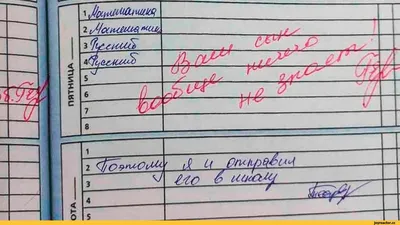 ПЯТНИЦА
1 Математика
2 Математика
3 Русский
4 Русский
5
6
7
8
Ваш сын
вообще ничего
не знает!
1
2 Поэтому я и отправил
3 его в школу
4
ОТА
joyreactor.cc